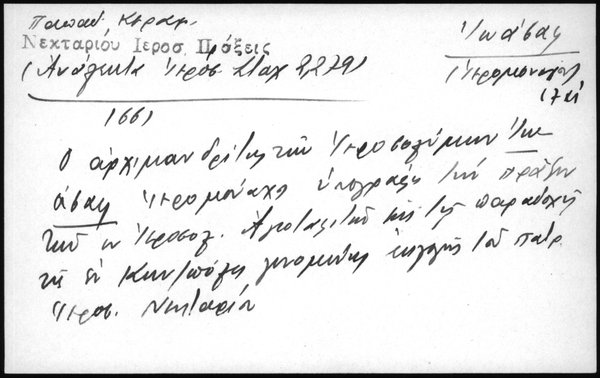 Παπαδ. Κεραμ.
Νεκταρίου Ιεροσ. Πράξεις
(Ανάλεκτα Ιεροσ. Σταχ 2,279)
Ιωάσαφ
Ιερομόναχος
17 αι
1661
Ο αρχιμανδρίτης των Ιεροσολύμων Ιω-
άσαφ Ιερομόναχος υπογράφει την πράξιν
των εν Ιεροσολ. Αγιοταφιτών της παραδοχής
της εν Κων/πόλει γενομένης εκλογής του πατρ.
Ιεροσ. Νεκταρίου